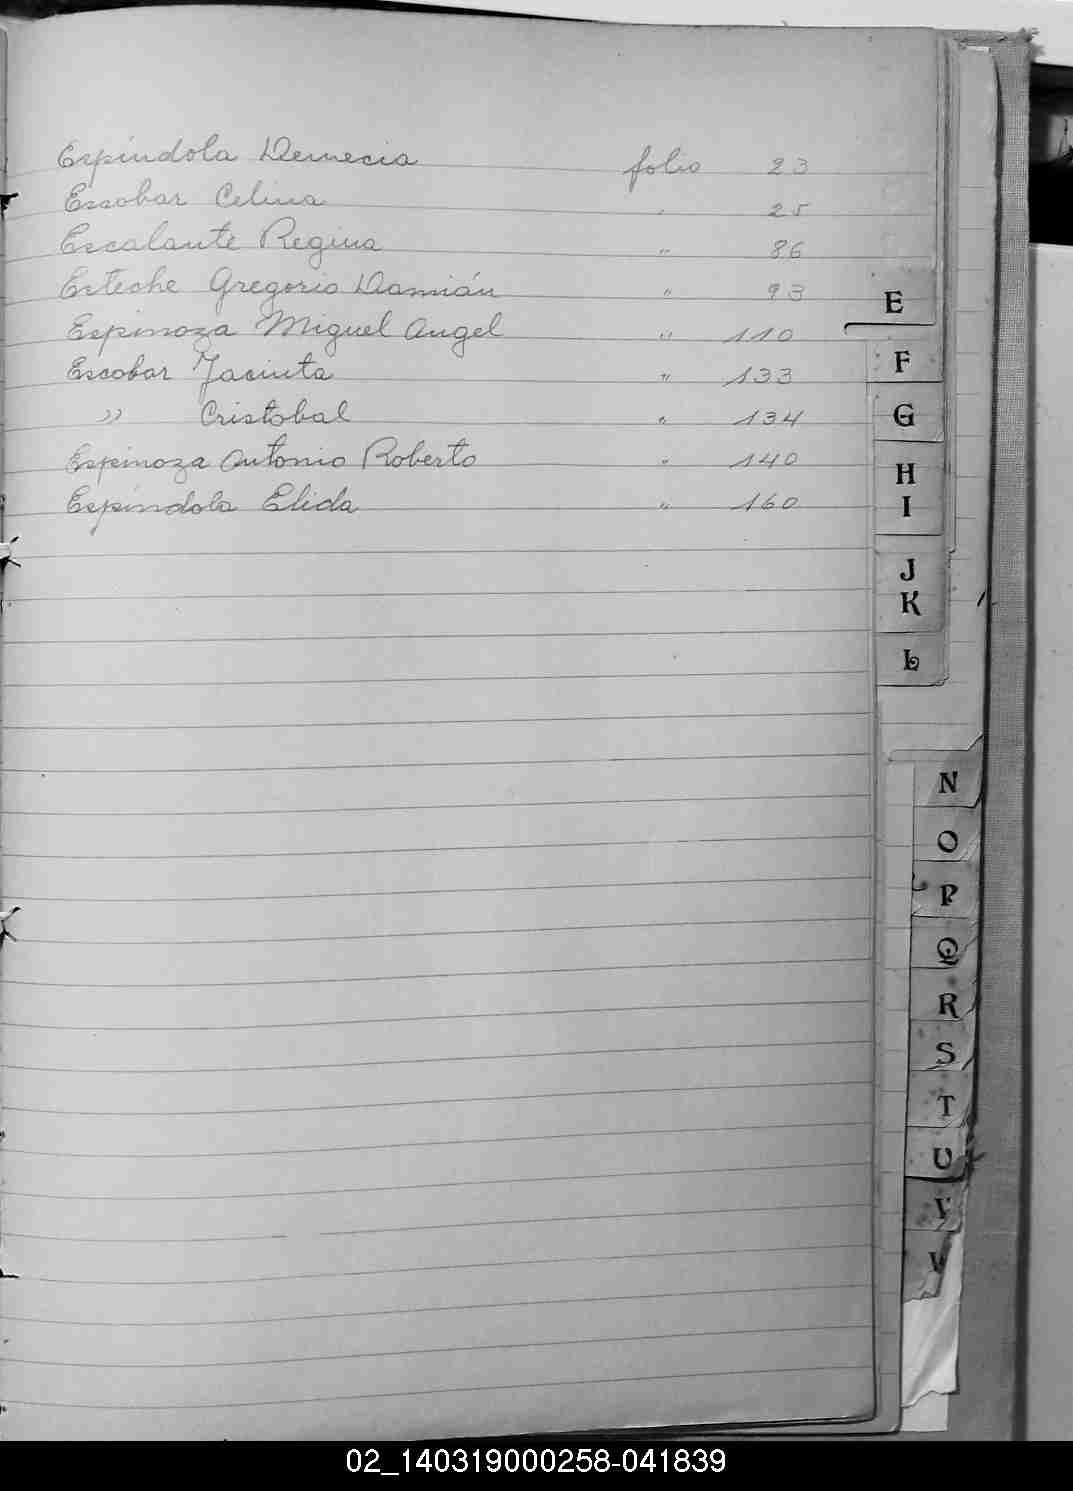 Espíndola Demecia folio 23
Escobar Celina " 25
Escalante Regina " 86
Esteche Gregorio Damián " 93
Espinoza Miguel Angel " 110
Escobar Jacinta " 133
" Cristobal " 134
Espinoza Antonio Roberto " 140
Espíndola Elida " 160
E
F
G
H
I
J
K
L
N
O
P
Q
R
S
T
U
V
02_140319000258-041839